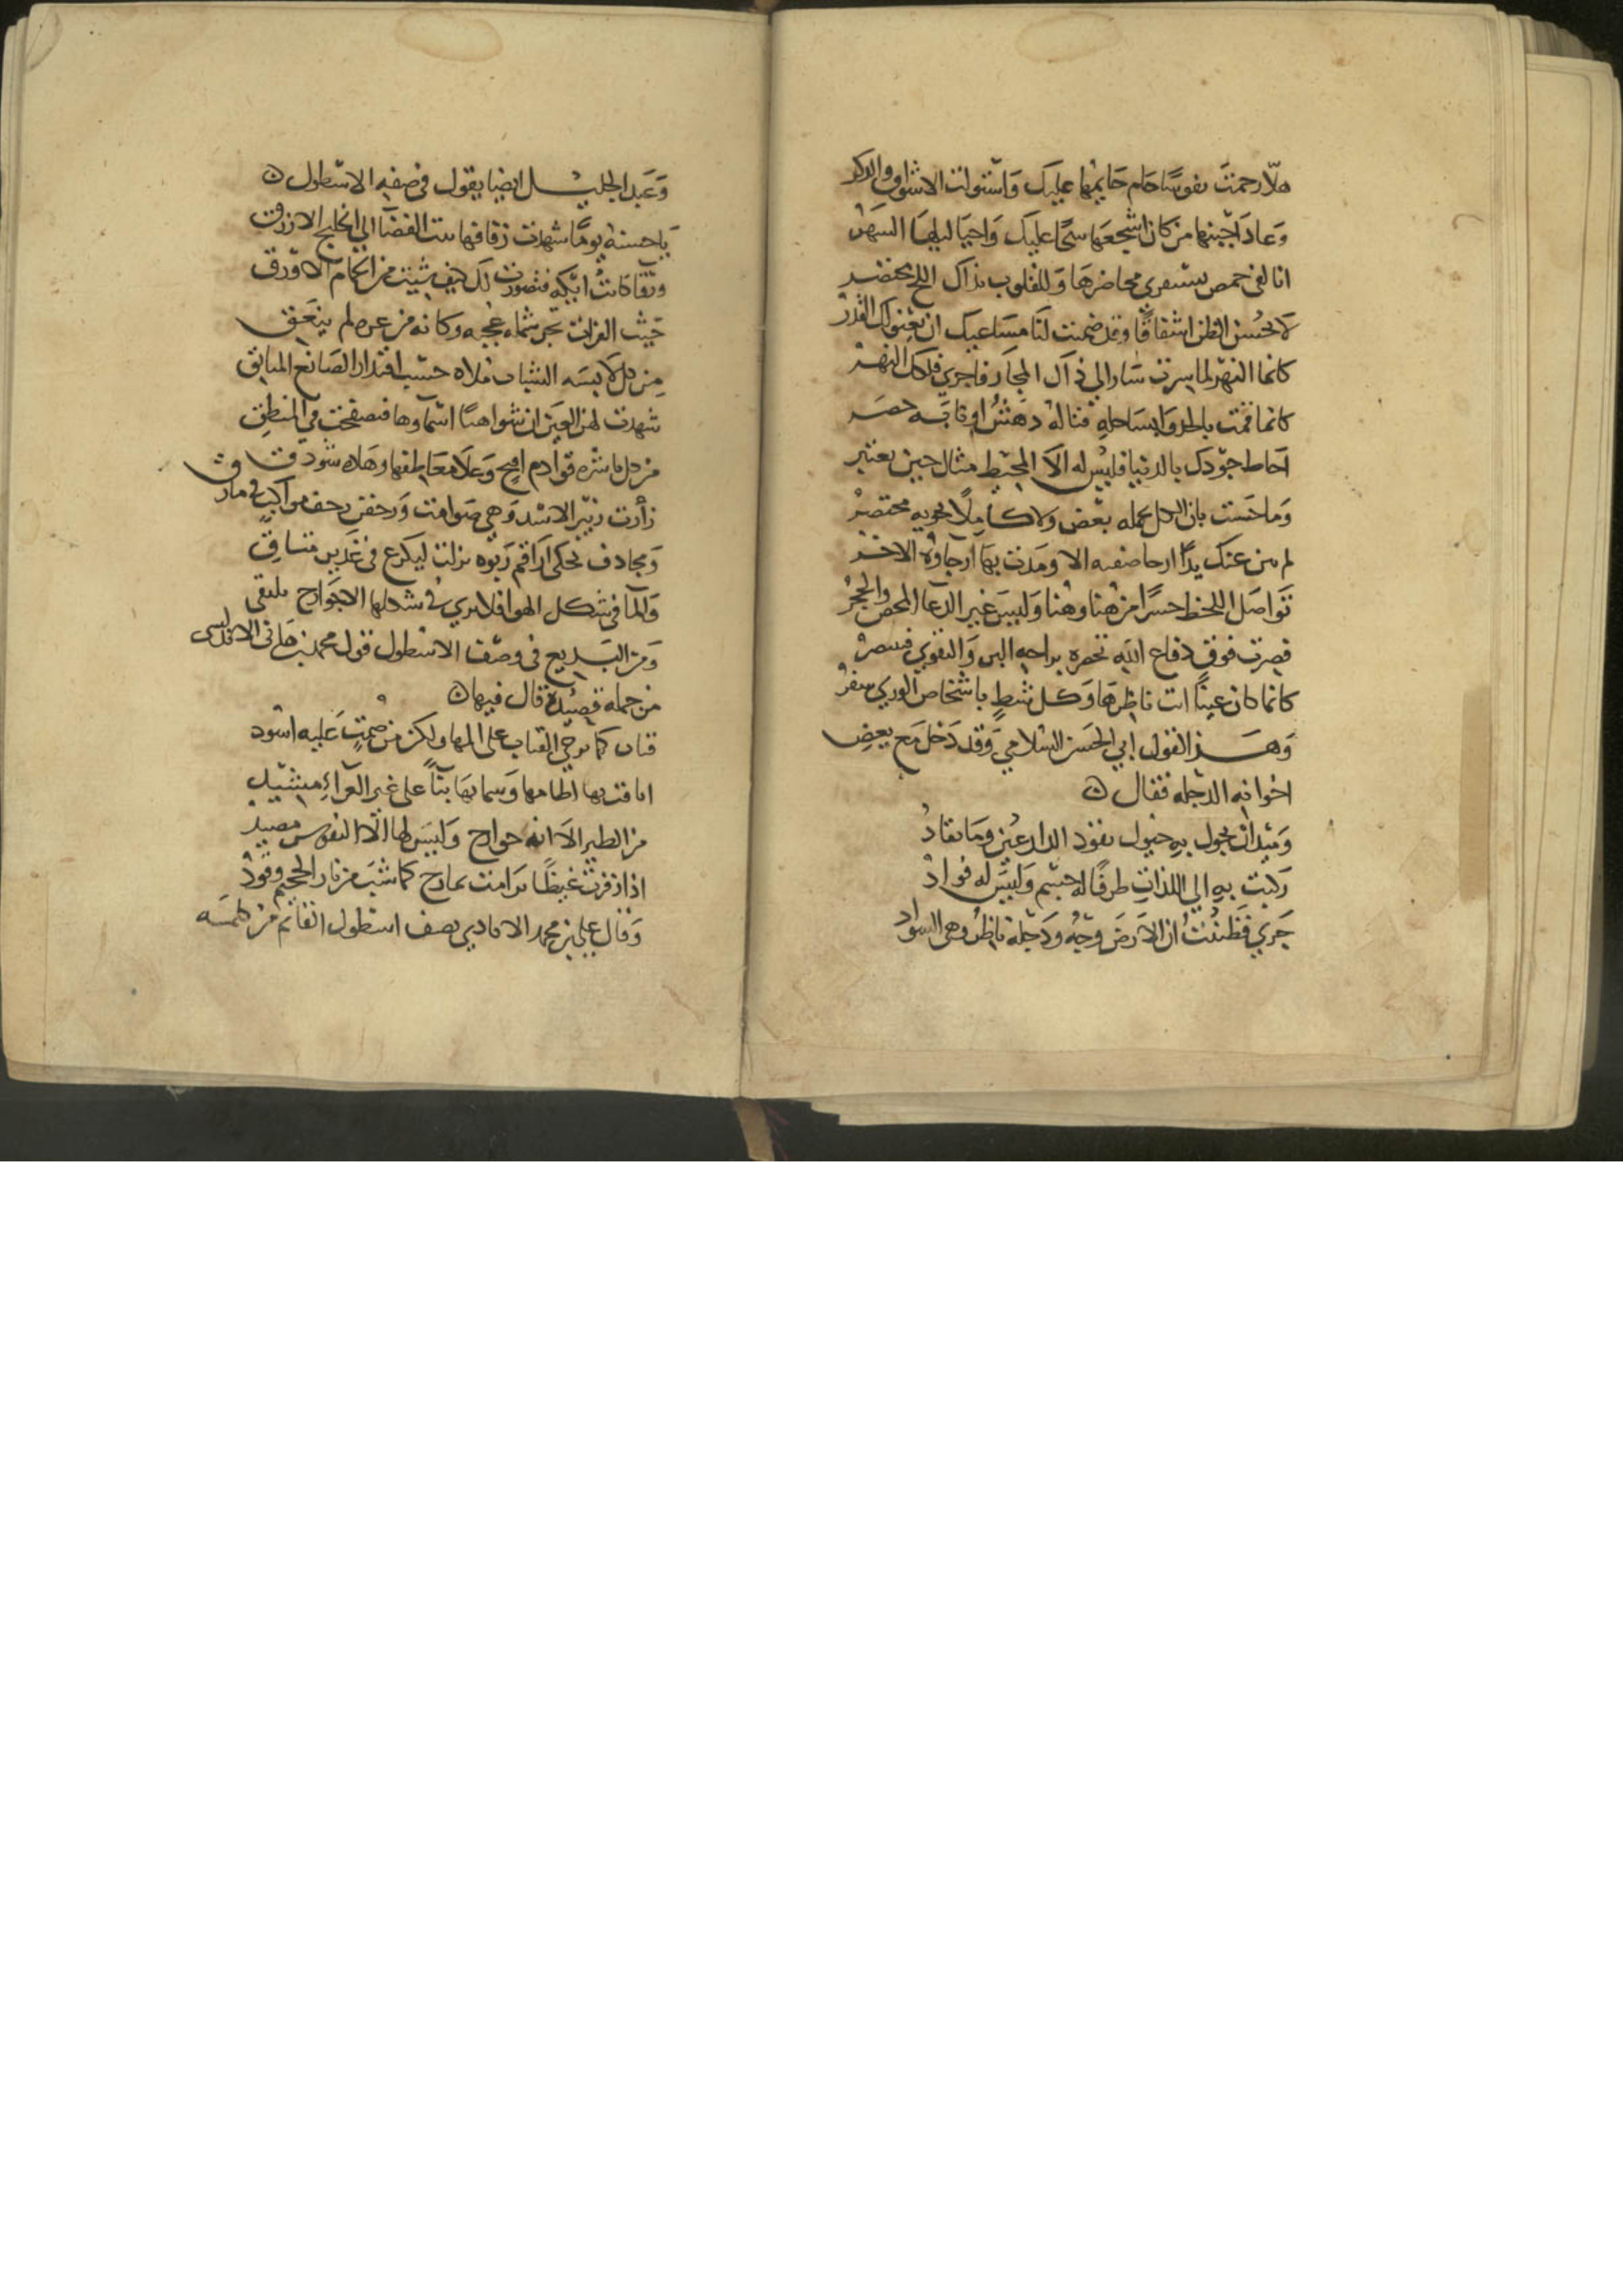 هلا رحمت نفوسا حام حايمها عليك واستولت الاشواق والذكر
وعاد اجبنها من كان اشجعها سحا عليك واحيا ليلها السهر
انا لفي حمص نستقري محاضرها وللقلوب بذاك اللج محتضر
لا نحسن الظن اشفاقا وقد ضمنت لنا مساعيك ان يعنو لك القدر
كانما النهر لما سرت سار الي ذاك المجاز فاجري فلكك النهر
كانما قمت باطواب ساحله فناله دهش او نابه حصر
احاط جودك بالدنيا فليس له الا المحيط مثال حين يعتبر
وما حسبت بان الكل يحمله بعض ولا كاملا يحويه مختصر
لم تثن عنك يدا ارجا ضفته الا ومدت بها ارجاوه الاخر
تواصل اللحظ حسرا من هنا وهنا وليس غير الدعا المحض والحجر
قصرت فوق دفاع الله تحصره براحه البر والتقوي فينتصر
كانما كان عينا انت ناظرها وكل شط باشخاص الوري شفر
وهذا لقول ابي الحسن السلامي وقد دخل مع بعض
اخوانه الدجله فقال
وميدان تجول به خيول تقود الدارعين وما تقاد
ركبت به الي اللذات طرفا له جسم وليس له فواد
جري فظننت ان الارض وجه ودجلة ناظر وهي السواد
وعبد الجليل ايضا يقول في صفه الاسطول
يا حسنها يوما شهدت زفافها بنت الفضا الي الخليج الازرق
ورقا كانت ايكه فتصورت لك كيف شيت من الحمام الاورق
حيث الغراب يجر شمله عجبه وكانه من غره لم ينعق
من كل لابسه الشباب ملاه حسب اقتدار الصانع المتانق
شهدت لهن العين ان شواهنا اسماوها فتصفحت في المنطق
من كل ناشره قوادم اجنح وعلا معاطفها وهاد سودق
زأرت زئير الاسد وهي صوامت وزحفن زحف مواكب في مازق
ومجادف تحكي اراقم ربوه نزلت ليكرع في غدير متاق
والما في شكل الهوا فلا يري في شكلها الا جوارح يلتقي
ومن البديع في وصف الاسطول قول محمد بن هاني الاندلسي
من جمله قصيدة قال فيها
قباب كما ترخي القباب علي المها ولكن من ضمت عليه اسود
انافت بها اطامها وسما بها بنآ علي غير العراء مشيد
من الطير الا انه جوارح وليس لها الا النفوس مصيد
اذا زفرت غيظا ترامت بمارج كما شب من نار الجحيم وقود
وقال علي بن محمد الايادي يصف اسطول القائم من كلمته